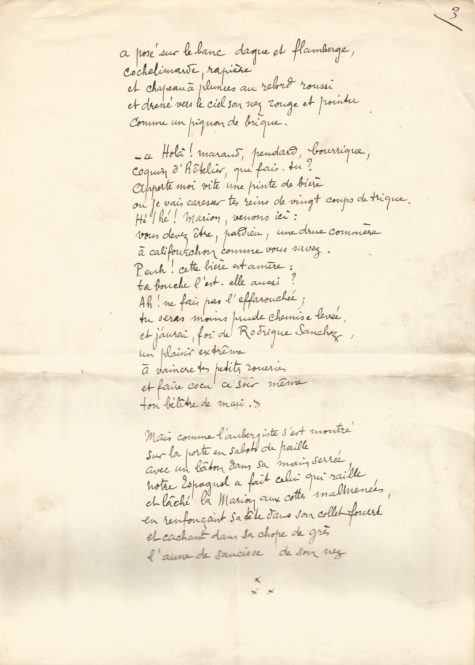 3
a posé sur le banc dague et flamberge,
cochelimarde, rapière
et chapeau à plumes au rebord roussi
et dressé vers le ciel son nez rouge et pointu
comme un pignon de brique.
_ « Holà ! maraud, pendard, bourrique,
coquin d'Hôtelier, que fais-tu ?
Apporte moi vite une pinte de bière
ou je vais caresser tes reins de vingt coups de trique.
Hé ! hé ! Marion, venons ici :
vous devez être, pardieu, une drue commère
à califourchon comme vous savez.
Peuh ! cette bière est amère ;
ta bouche l'est-elle aussi ?
Ah ! ne fais pas l'effarouchée ;
tu seras moins prude chemise levée,
et j'aurai, foi de Rodrigue Sanchez,
un plaisir extrême
à vaincre tes petits roueries
et faire cocu ce soir même
ton bélître de mari. »
Mais comme l'aubergiste s'est montré
sur la porte en sabots de paille
avec un bâton dans sa main serrée,
notre Espagnol a fait celui qui raille
et lâché la Marion aux cottes malmenées,
en renfonçant sa tête dans son collet fourré
et cachant dans sa chope de grès
l'aune de saucisse de son nez
x
x x